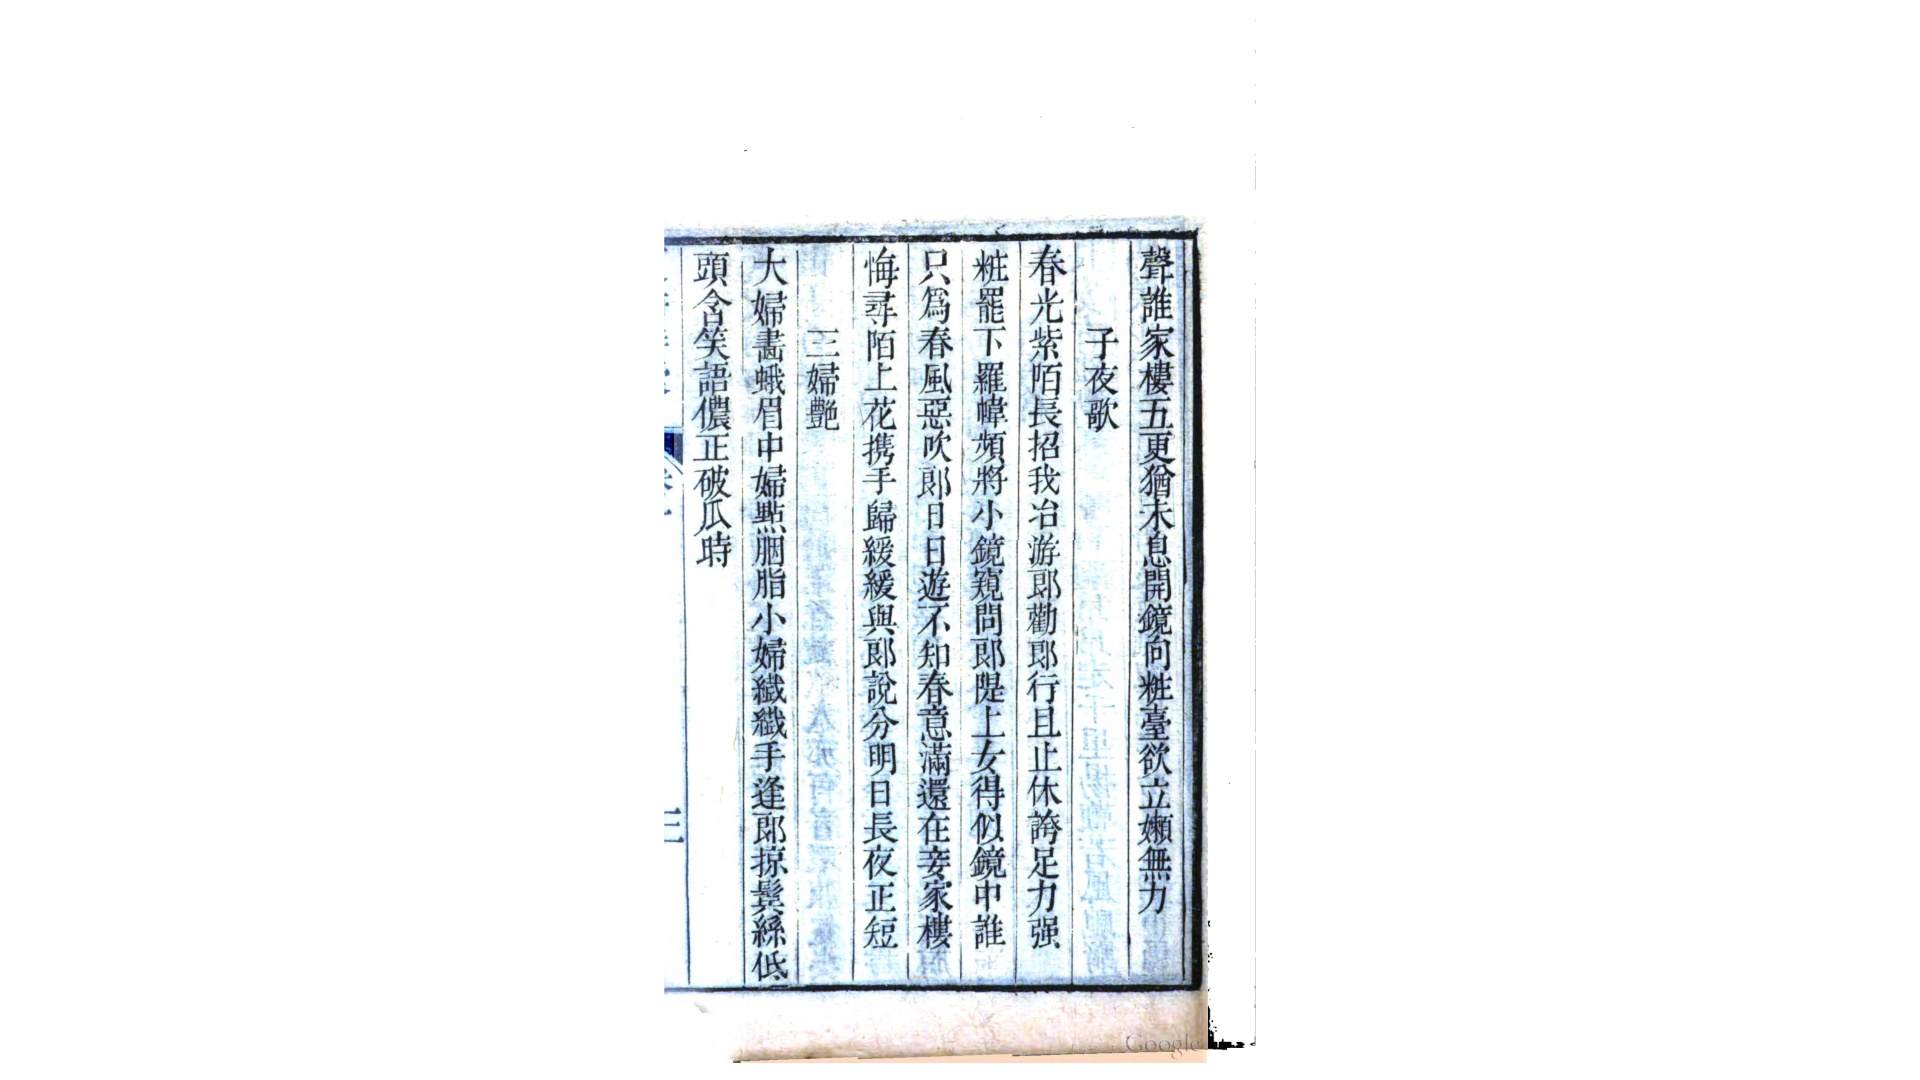 聲誰家樓五更猶未息開鏡向粧臺欲立嬾無力
子夜歌
春光紫陌長招我冶游郞勸郞行且止休誇足力强
粧罷下羅幃頻將小鏡窺問郞隄上女得似鏡中誰
只爲春風惡吹郞日日遊不知春意滿還在妾家樓
悔尋陌上花携手歸緩緩與郞說分明日長夜正短
三婦艶
大婦畵蛾眉中婦點胭脂小婦纎纎手逢郞掠鬓絲低
頭含笑語儂正破瓜時
三
Google